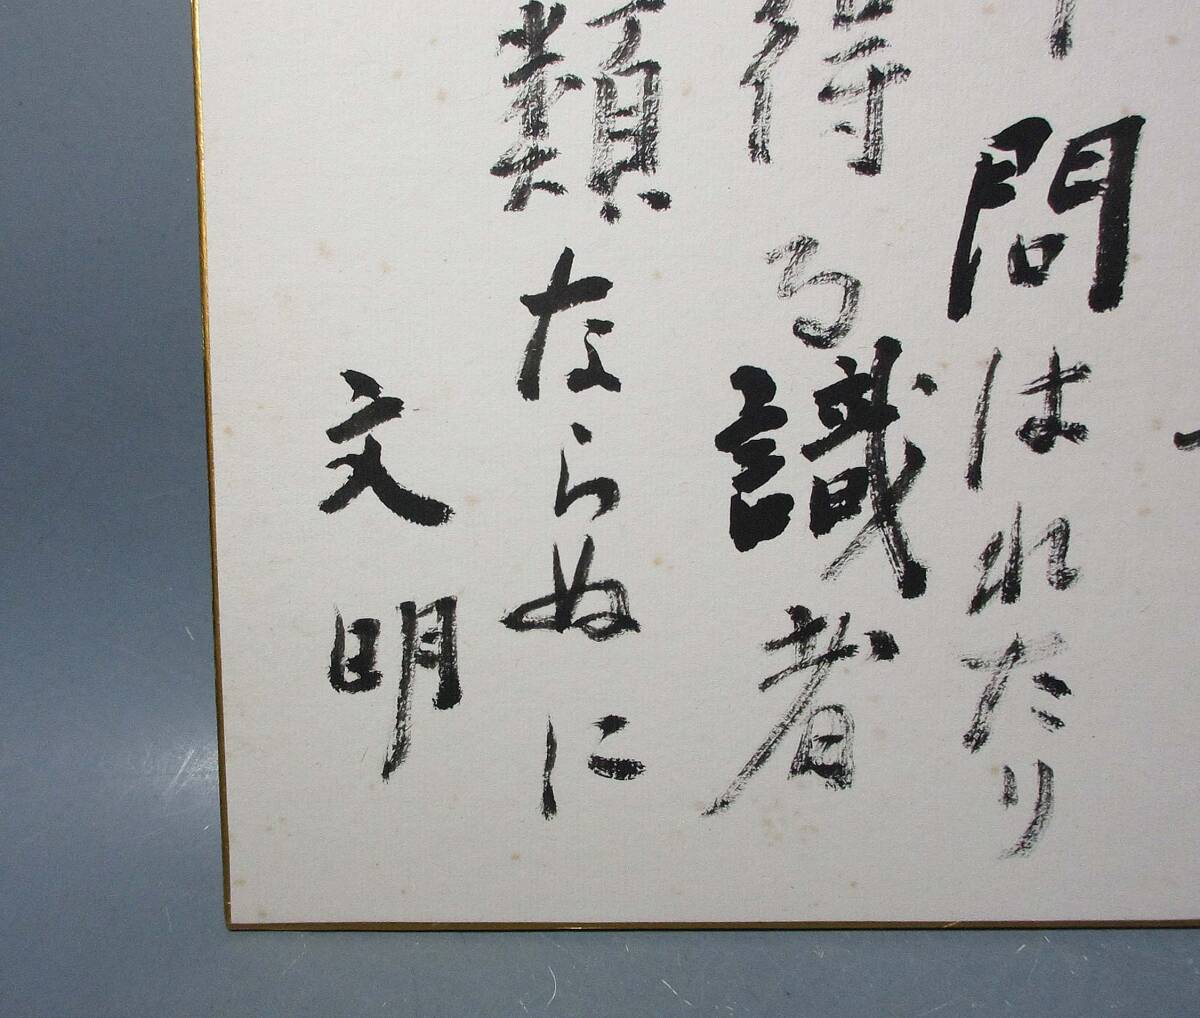 問はれたり
得る識者
類ならぬに
文明